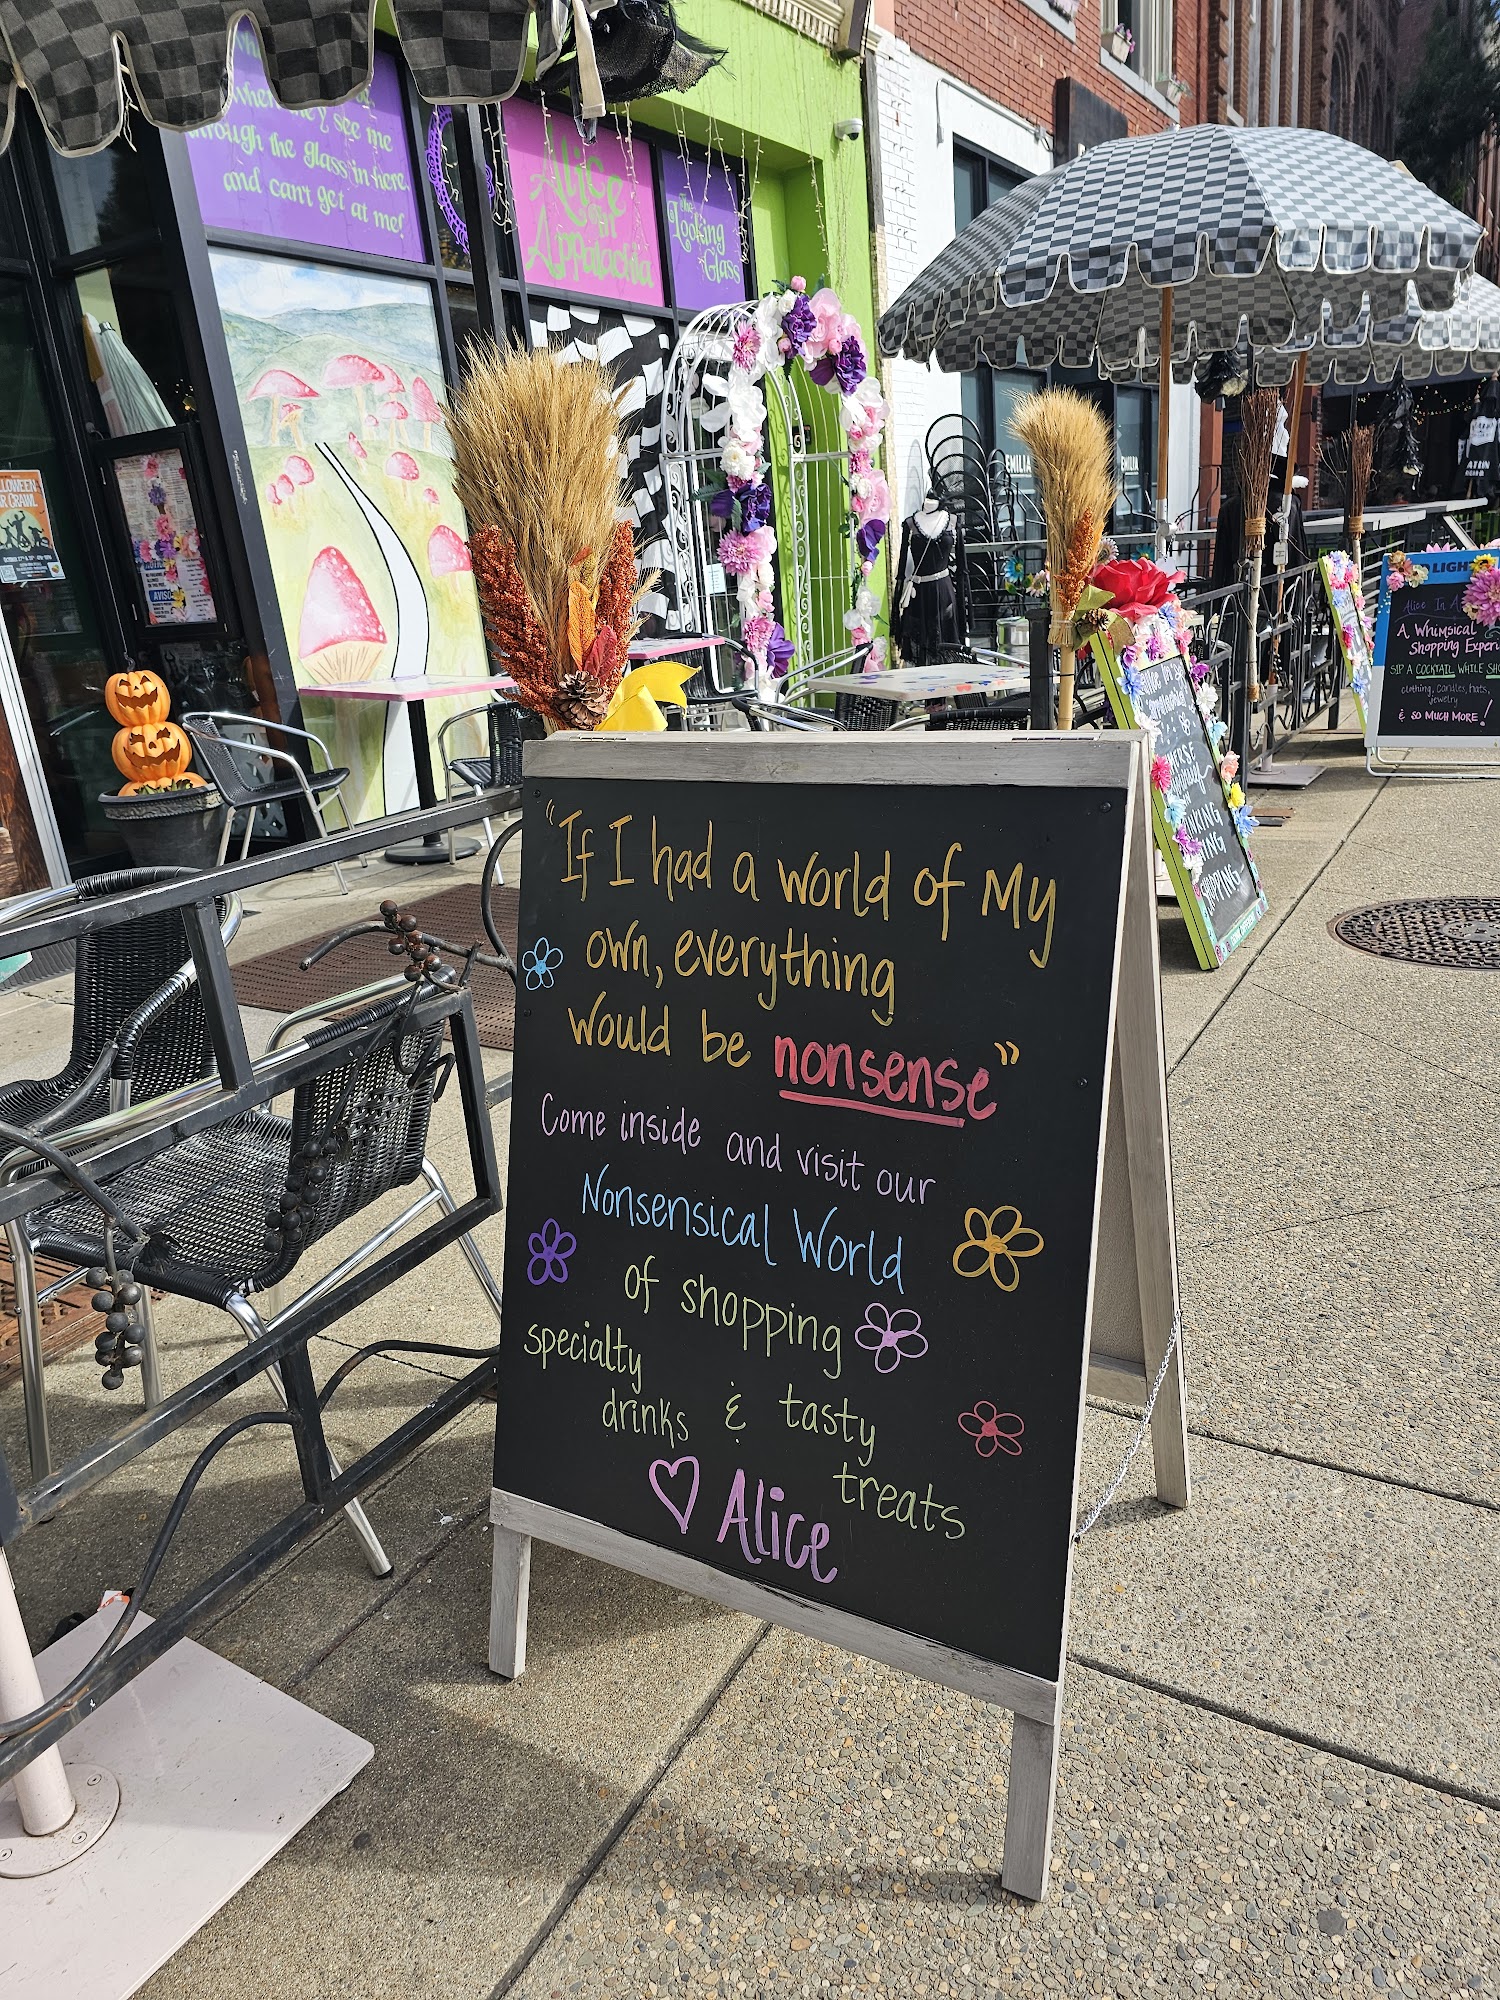 when they see me
through the glass in here,
and can't get at me!
Alice
in
Appalachia
The
Looking
Glass
EMILIA
EMILIA
"If I had a world of My
own, everything
would be nonsense"
Come inside and visit our
Nonsensical World
of shopping
specialty
drinks & tasty
treats
♡ Alice
SHOPPING
LIGHT
Alice In A
A Whimsical
Shopping Experi
SIP A COCKTAIL WHILE SH
clothing, candles, hats,
jewelry
& SO MUCH MORE!